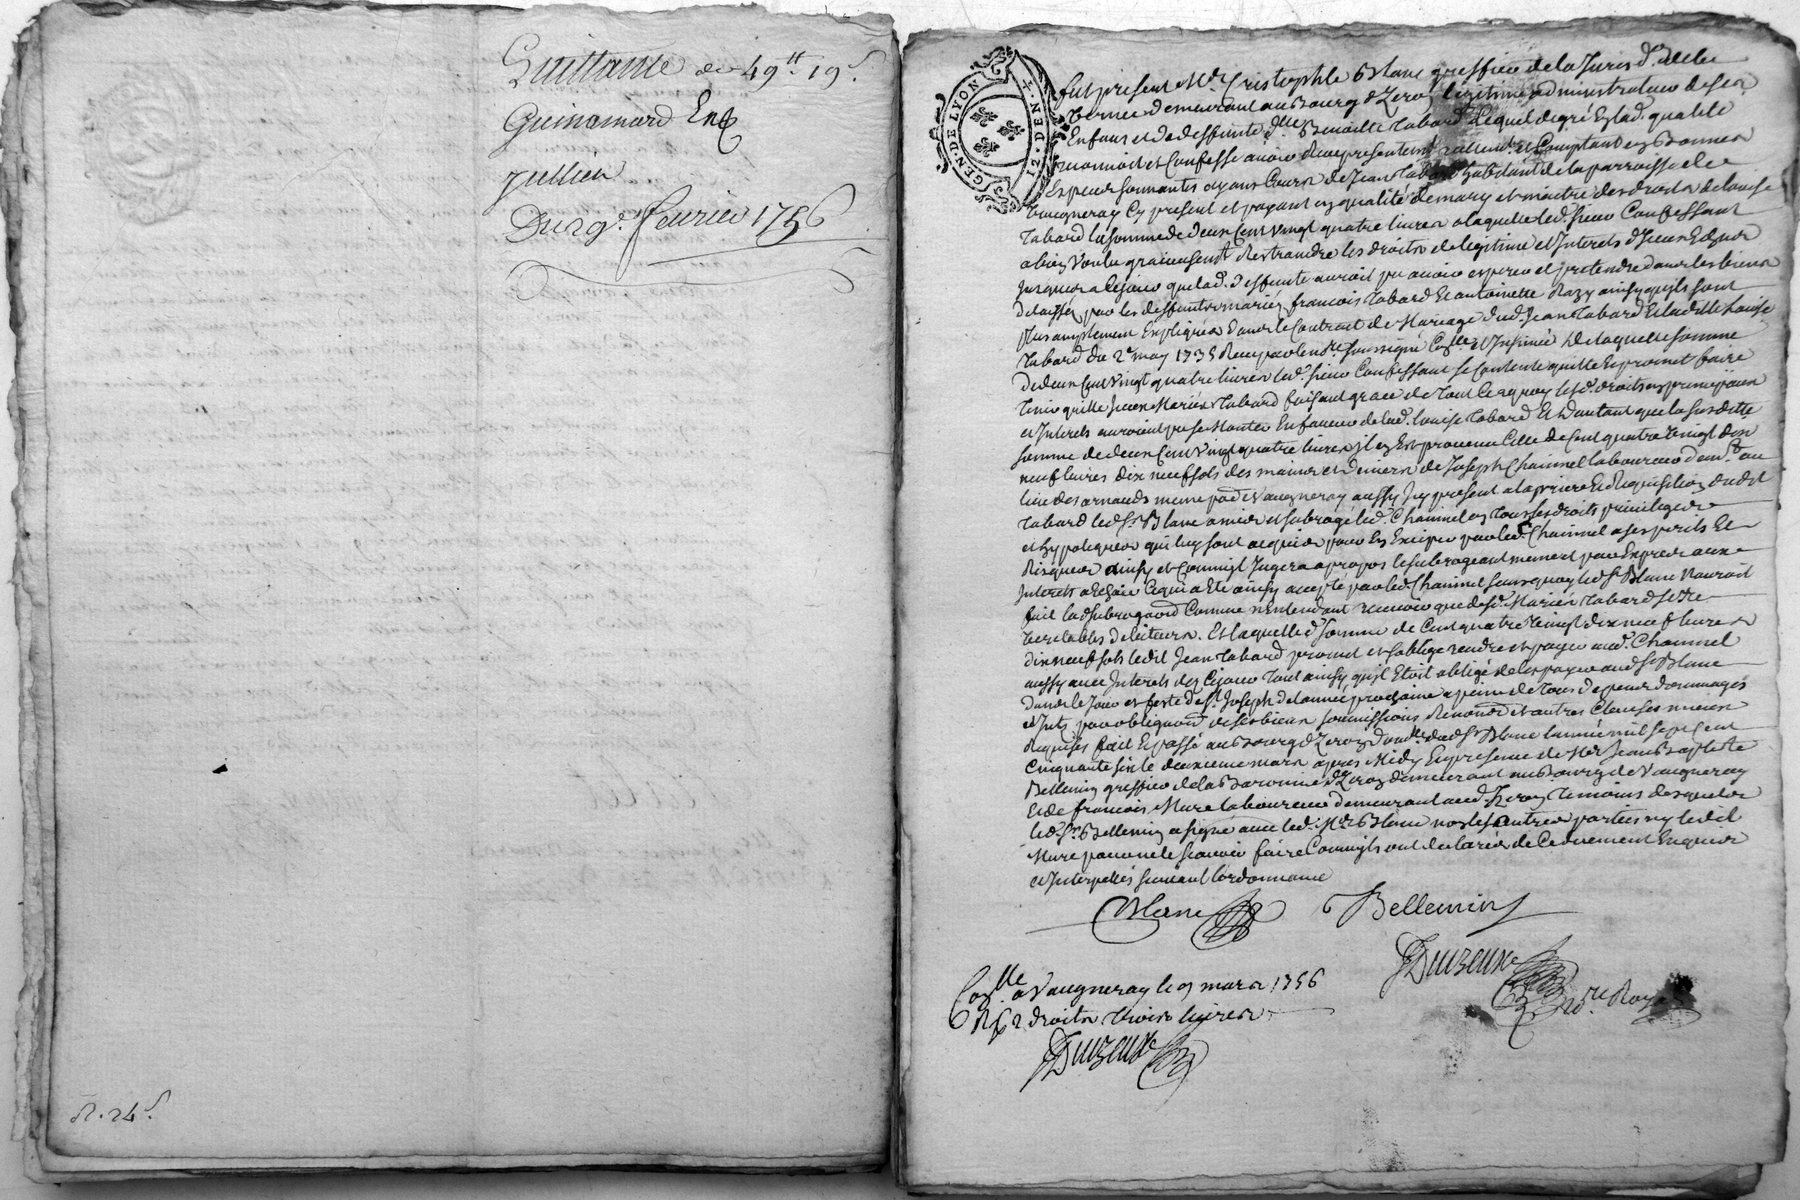 Quittance de 49ᵗᵗ 19ˢ
Guinamard Et
Jullien
Du 29ᵉ. fevrier 1756
R. 24ˢ.
GEN. DE LYON
12. DEN.
fut present Mᵉ. Cristophle Blanc greffier de la Jurisdᵒⁿ. de
demeurant au Bourg d'Izeron legitime administrateur de ses
Enfans et de deffunte dˡˡᵉ Benoitte Tabard Lequel de gré Et lad. qualité
reconnoit et Confesse avoir du present reellemᵗ et Comptant en Bonnes
Especes sonnantes ayans Cours de Jean Tabard habitant de la parroisse de
Vaugneray Cy present et payant en qualité de mary et maitre des droits de Louise
Tabard la somme de deux Cent vingt quatre livres a laquelle led. sieur Confessant
a bien voulu gracieusemᵗ Restraindre les droits de legitime et Interets d'Iceux Echus
jusques a Ce jour que lad. deffunte auroit pu avoir esperer et pretendre dans les biens
delaissés par les deffunts mariés francois Tabard Et antoinette Razy ainsy qu'ils sont
plus amplement Expliqués dans le Contrat de Mariage dud. Jean Tabard Et lad. dˡˡᵉ Louise
Tabard du 2ᵉ may 1735 Receu par le nʳᵉ soussigné Coⁿˡˡᵉ et Insinué De laquelle somme
de deux Cent vingt quatre livres led. sieur Confessant se Contente quitte Et promet faire
tenir quitte Iceux Mariés Tabard faisant grace de Tout Ce a quoy lesd. droits en principaux
et Interets auroient pu se Monter En faveur de lad. Louise Tabard Et D'autant que la susditte
somme de deux Cent vingt quatre livres il en Est provenu Celle de Cent quatre vingt dix
neuf livres dix neuf sols des mains et deniers de Joseph Chainnel laboureur demᵗ. au
lieu des arnauds meme parᵉ de Vaugneray aussy Icy present a la priere Et Requisition dudit
Tabard led. Sʳ Blanc a mis et subrogé led. Chainnel en Tous ses droits privileges
et hypoteques qui luy sont acquis pour En Exciper par led. Chainnel a ses perils Et
Risques ainsy et Comm'il Jugera a propos le subrogeant mement par Exprés aux
Interets a Echoir Ce qui a Eté ainsy accepté par led. Chainnel sans quoy led. Sʳ Blanc N'auroit
fait lad. subrogaôn Comme n'Entendant que desd. Mariés Tabard
veritables debiteurs. Et laquelle d. somme de Cent quatre vingt dix neuf livres
dix neuf sols ledit Jean Tabard promet et s'oblige rendre et payer aud. Chainnel
aussy avec Interets dez Ce jour Tout ainsy qu'il Etoit obligé de les payer aud. Sʳ Blanc
dans le Jour et feste de Sᵗ Joseph de l'année prochaine a peine de Tous depens dommages
et Intᵗˢ par obligaôn de ses biens soumissions Renonoⁿˢ et autres Clauses mieux
Requises fait Et passé au Bourg d'Izeron Domˡˡᵉ dud. Sʳ Blanc l'année mil sept cent
Cinquante six le deuxieme mars apres Midy En presence de Mᵉ Jean Baptiste
Bellemin greffier de la Baronnie d'Izeron demeurant au Bourg de Vaugneray
Et de francois Mure laboureur demeurant aud. Izeron Temoins desquels
led. Sʳ Bellemin a signé avec led. Mᵉ Blanc non les autres parties ny ledit
Mure pour ne le scavoir faire Comm'ils ont declaré de Ce duement Enquis
et Interpellés suivant l'ordonnance
Blanc Bellemin
Duizeux
nʳᵉ Royal
Coⁿˡˡᵉ a Vaugneray le 9 mars 1756
R. 62 droits Trois livres
Duizeux